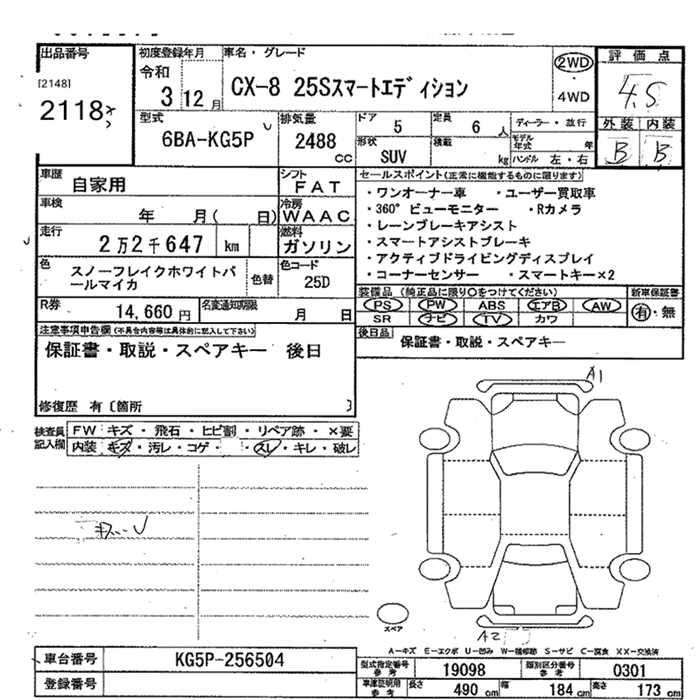 出品番号
[2148]
2118
初度登録年月
令和
3 12月
車名・グレード
CX-8 25Sスマートエディション
2WD
4WD
評価点
4.5
外装 内装
B B
型式
6BA-KG5P
排気量
2488
cc
ドア
5
定員
6 人
形状
SUV
積載
kg
ディーラー・並行
モデル年式 年
ハンドル 左・右
車歴
自家用
シフト
FAT
車検
年 月( 日)
冷房
WAAC
走行
2万2千647 km
燃料
ガソリン
色
スノーフレイクホワイトパールマイカ
色替
色コード
25D
R券
14,660円
名変通知期限
月 日
セールスポイント(正常に機能するものに限ります)
・ワンオーナー車 ・ユーザー買取車
・360°ビューモニター ・Rカメラ
・レーンブレーキアシスト
・スマートアシストブレーキ
・アクティブドライビングディスプレイ
・コーナーセンサー ・スマートキー×2
装備品(純正品に限り○をつけてください)
新車保証書
PS PW ABS エアB AW
有・無
SR ナビ TV カワ
後日品
保証書・取説・スペアキー
注意事項申告欄(不具合内容等は具体的に記入して下さい)
保証書・取説・スペアキー 後日
修復歴 有〔箇所 〕
検査員記入欄
FW キズ・飛石・ヒビ割・リペア跡・×要
内装 キズ・汚レ・コゲ・ ・スレ・キレ・破レ
A1
A2
スペア
A-キズ E-エクボ U-凹み W-補修跡 S-サビ C-腐食 XX-交換済
車台番号
KG5P-256504
登録番号
型式指定番号
参考
19098
類別区分番号
参考
0301
車検証明用
参考
長さ
490 cm
幅
184 cm
高さ
173 cm